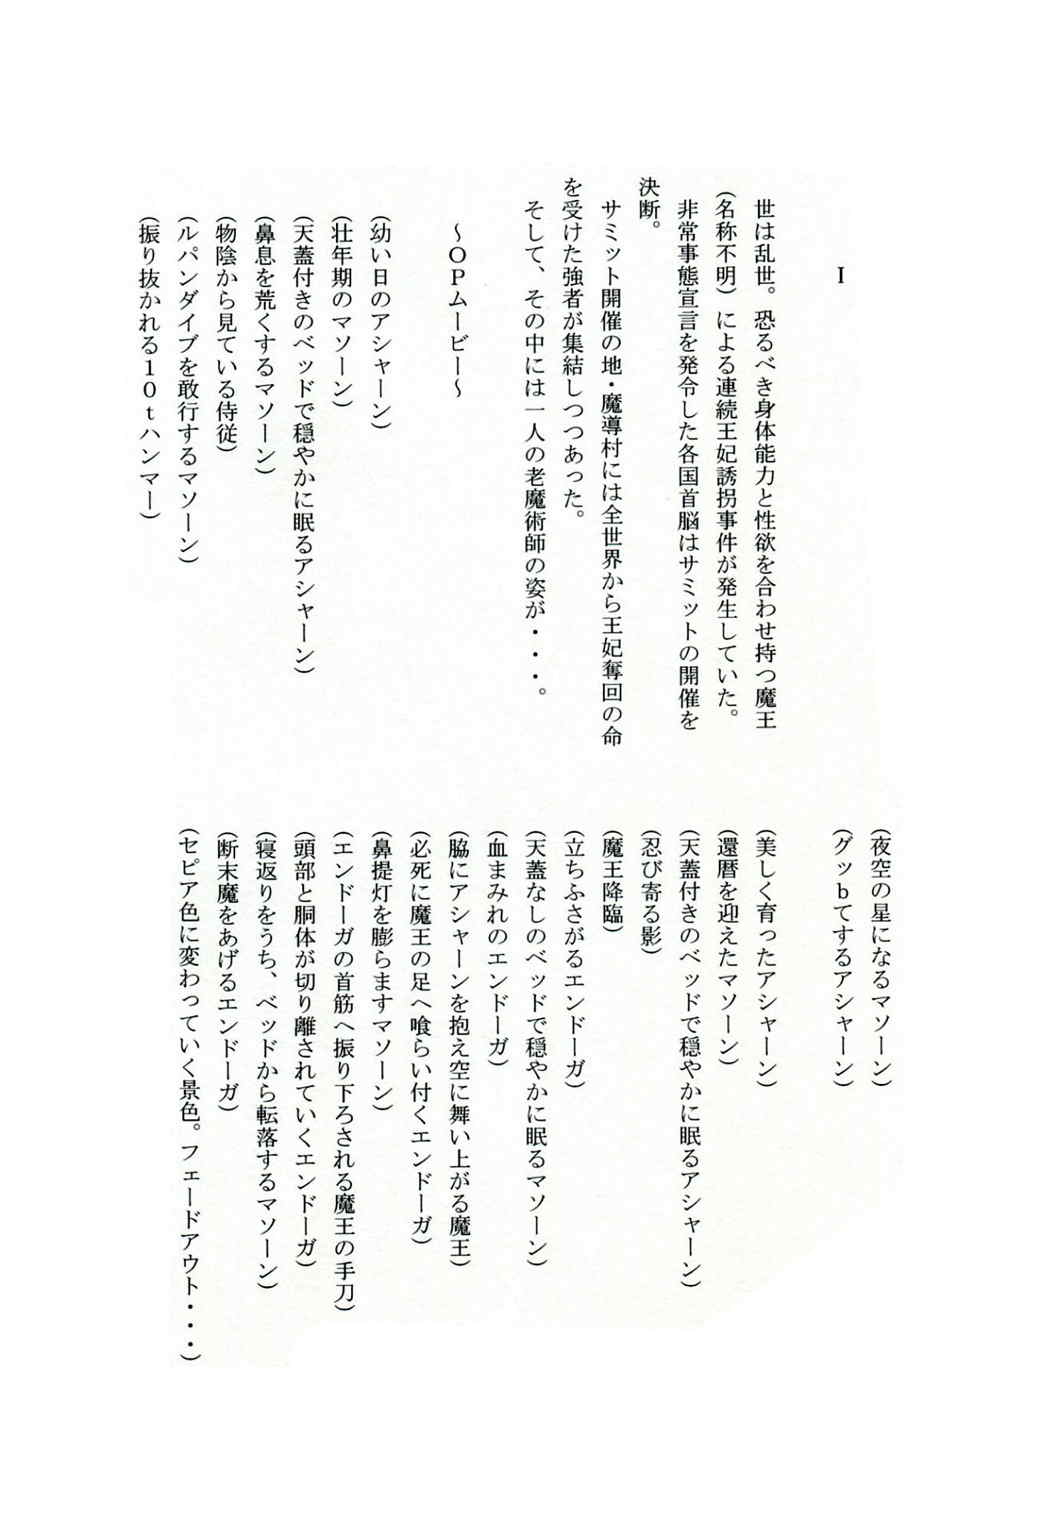 I
世は乱世。恐るべき身体能力と性欲を合わせ持つ魔王
(名称不明)による連続王妃誘拐事件が発生していた。
非常事態宣言を発令した各国首脳はサミットの開催を
決断。
サミット開催の地・魔導村には全世界から王妃奪回の命
を受けた強者が集結しつつあった。
そして、その中には一人の老魔術師の姿が・・・。
～OPムービー～
(幼い日のアシャーン)
(壮年期のマソーン)
(天蓋付きのベッドで穏やかに眠るアシャーン)
(鼻息を荒くするマソーン)
(物陰から見ている侍従)
(ルパンダイブを敢行するマソーン)
(振り抜かれる10tハンマー)
(夜空の星になるマソーン)
(グッbてするアシャーン)
(美しく育ったアシャーン)
(還暦を迎えたマソーン)
(天蓋付きのベッドで穏やかに眠るアシャーン)
(忍び寄る影)
(魔王降臨)
(立ちふさがるエンドーガ)
(天蓋なしのベッドで穏やかに眠るマソーン)
(血まみれのエンドーガ)
(脇にアシャーンを抱え空に舞い上がる魔王)
(必死に魔王の足へ喰らい付くエンドーガ)
(鼻提灯を膨らますマソーン)
(エンドーガの首筋へ振り下ろされる魔王の手刀)
(頭部と胴体が切り離されていくエンドーガ)
(寝返りをうち、ベッドから転落するマソーン)
(断末魔をあげるエンドーガ)
(セピア色に変わっていく景色。フェードアウト・・・)